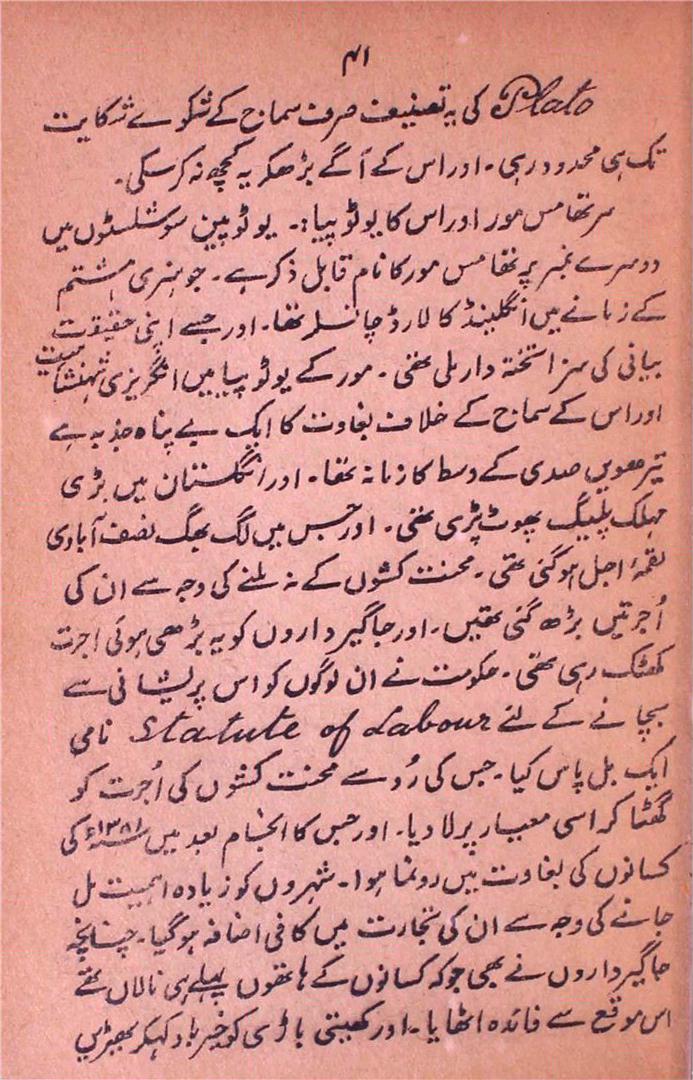 ۴۱
Plato کی یہ تصنیف صرف سماج کے شکوے شکایت
تک ہی محدود رہی۔ اور اس کے آگے بڑھکر یہ کچھ نہ کر سکی۔
سر تھامس مور اور اس کا یوٹوپیا:۔ یوٹوپین سوشلسٹوں میں
دوسرے نمبر پر تھامس مور کا نام قابل ذکر ہے۔ جو ہنری ہشتم
کے زمانے میں انگلینڈ کا لارڈ چانسلر تھا۔ اور جسے اپنی حقیقت
بیانی کی سزا تختہ دار ملی تھی۔ مور کے یوٹوپیا میں انگریزی شہنشاہیت
اور اس کے سماج کے خلاف بغاوت کا ایک بے پناہ جذبہ ہے
تیرھویں صدی کے وسط کا زمانہ تھا۔ اور انگلستان میں بڑی
مہلک پلیگ پھوٹ پڑی تھی۔ اور جس میں لگ بھگ نصف آبادی
لقمۂ اجل ہو گئی تھی۔ محنت کشوں کے نہ ملنے کی وجہ سے ان کی
اُجرتیں بڑھ گئی تھیں۔ اور جاگیرداروں کو یہ بڑھی ہوئی اجرت
کھٹک رہی تھی۔ حکومت نے ان لوگوں کو اس پریشانی سے
بچانے کے لئے Statute of Labour نامی
ایک بل پاس کیا۔ جس کی رُو سے محنت کشوں کی اُجرت کو
گھٹا کر اسی معیار پر لا دیا۔ اور جس کا انجام بعد میں ۱۳۸۱ء کی
کسانوں کی بغاوت میں رونما ہوا۔ شہروں کو زیادہ اہمیت مل
جانے کی وجہ سے ان کی تجارت میں کافی اضافہ ہو گیا۔ چنانچہ
جاگیرداروں نے بھی جو کہ کسانوں کے ہاتھوں پہلے ہی نالاں تھے
اس موقع سے فائدہ اٹھایا۔ اور کھیتی باڑی کو خیرباد کہکر بھیڑیں